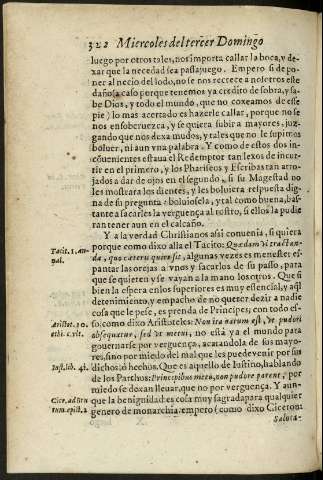 322 Miercoles del tercer Domingo
luego por otros tales, nos importa callar la boca, y de-
xar que la necedad sea passajuego. Empero si de po-
ner al necio del lodo, no se nos recrece a nosotros este
daño (a caso porque tenemos ya credito de sobra, y sa-
be Dios, y todo el mundo, que no coxeamos de esse
pie) lo mas acertado es hazerle callar, porque no se
nos ensoberuezca, y se quiera subir a mayores, juz-
gando que nos dexa mudos, y tales que no le supimos
boluer, ni aun vna palabra. Y como de estos dos in-
conuenientes estaua el Redemptor tan lexos de incur-
rir en el primero, y los Phariseos y Escribas tan arro-
jados a dar de ojos en el segundo, si su Magestad no
les mostrara los dientes, y les boluiera respuesta dig-
na de su pregunta: boluiosela, y tal como buena, bas-
tante a sacarles la verguença al rostro, si ellos la pudie
ran tener aun en el calcaño.
Y a la verdad Christianos assi conuenia, si quiera
Tacit. 1. An-
nal.
porque como dixo alla el Tacito: Quædam vi tractan-
da, quo ceteris quies sit, algunas vezes es menester es-
pantar las orejas a vnos y sacarlos de su passo, para
que se quieten y se vayan a la mano los otros. Que si
bien la esfera en los superiores es muy essencial, y aql
detenimiento, y empacho de no querer dezir a nadie
cosa que le pese, es prenda de Principes; con todo es-
Aristot. 10.
ethi. c. vlt.
so, como dixo Aristoteles: Non ita natum est, vt pudori
obsequatur, sed vt metui, no está ya el mundo para
gouernarse por verguença, acatandola de sus mayo-
res, sino por miedo del mal que les puede venir por sus
Iust. lib. 41.
dichos o hechos. Que es aquello de Iustino, hablando
de los Parthos: Principibus metu, non pudore parent, por
miedo se dexan lleuar, que no por verguença. Y aun-
Cicer. ad Bru
tum. epist. 2
que la benignidad es cosa muy sagrada para qualquier
genero de monarchia: empero (como dixo Ciceron:
Saluta-